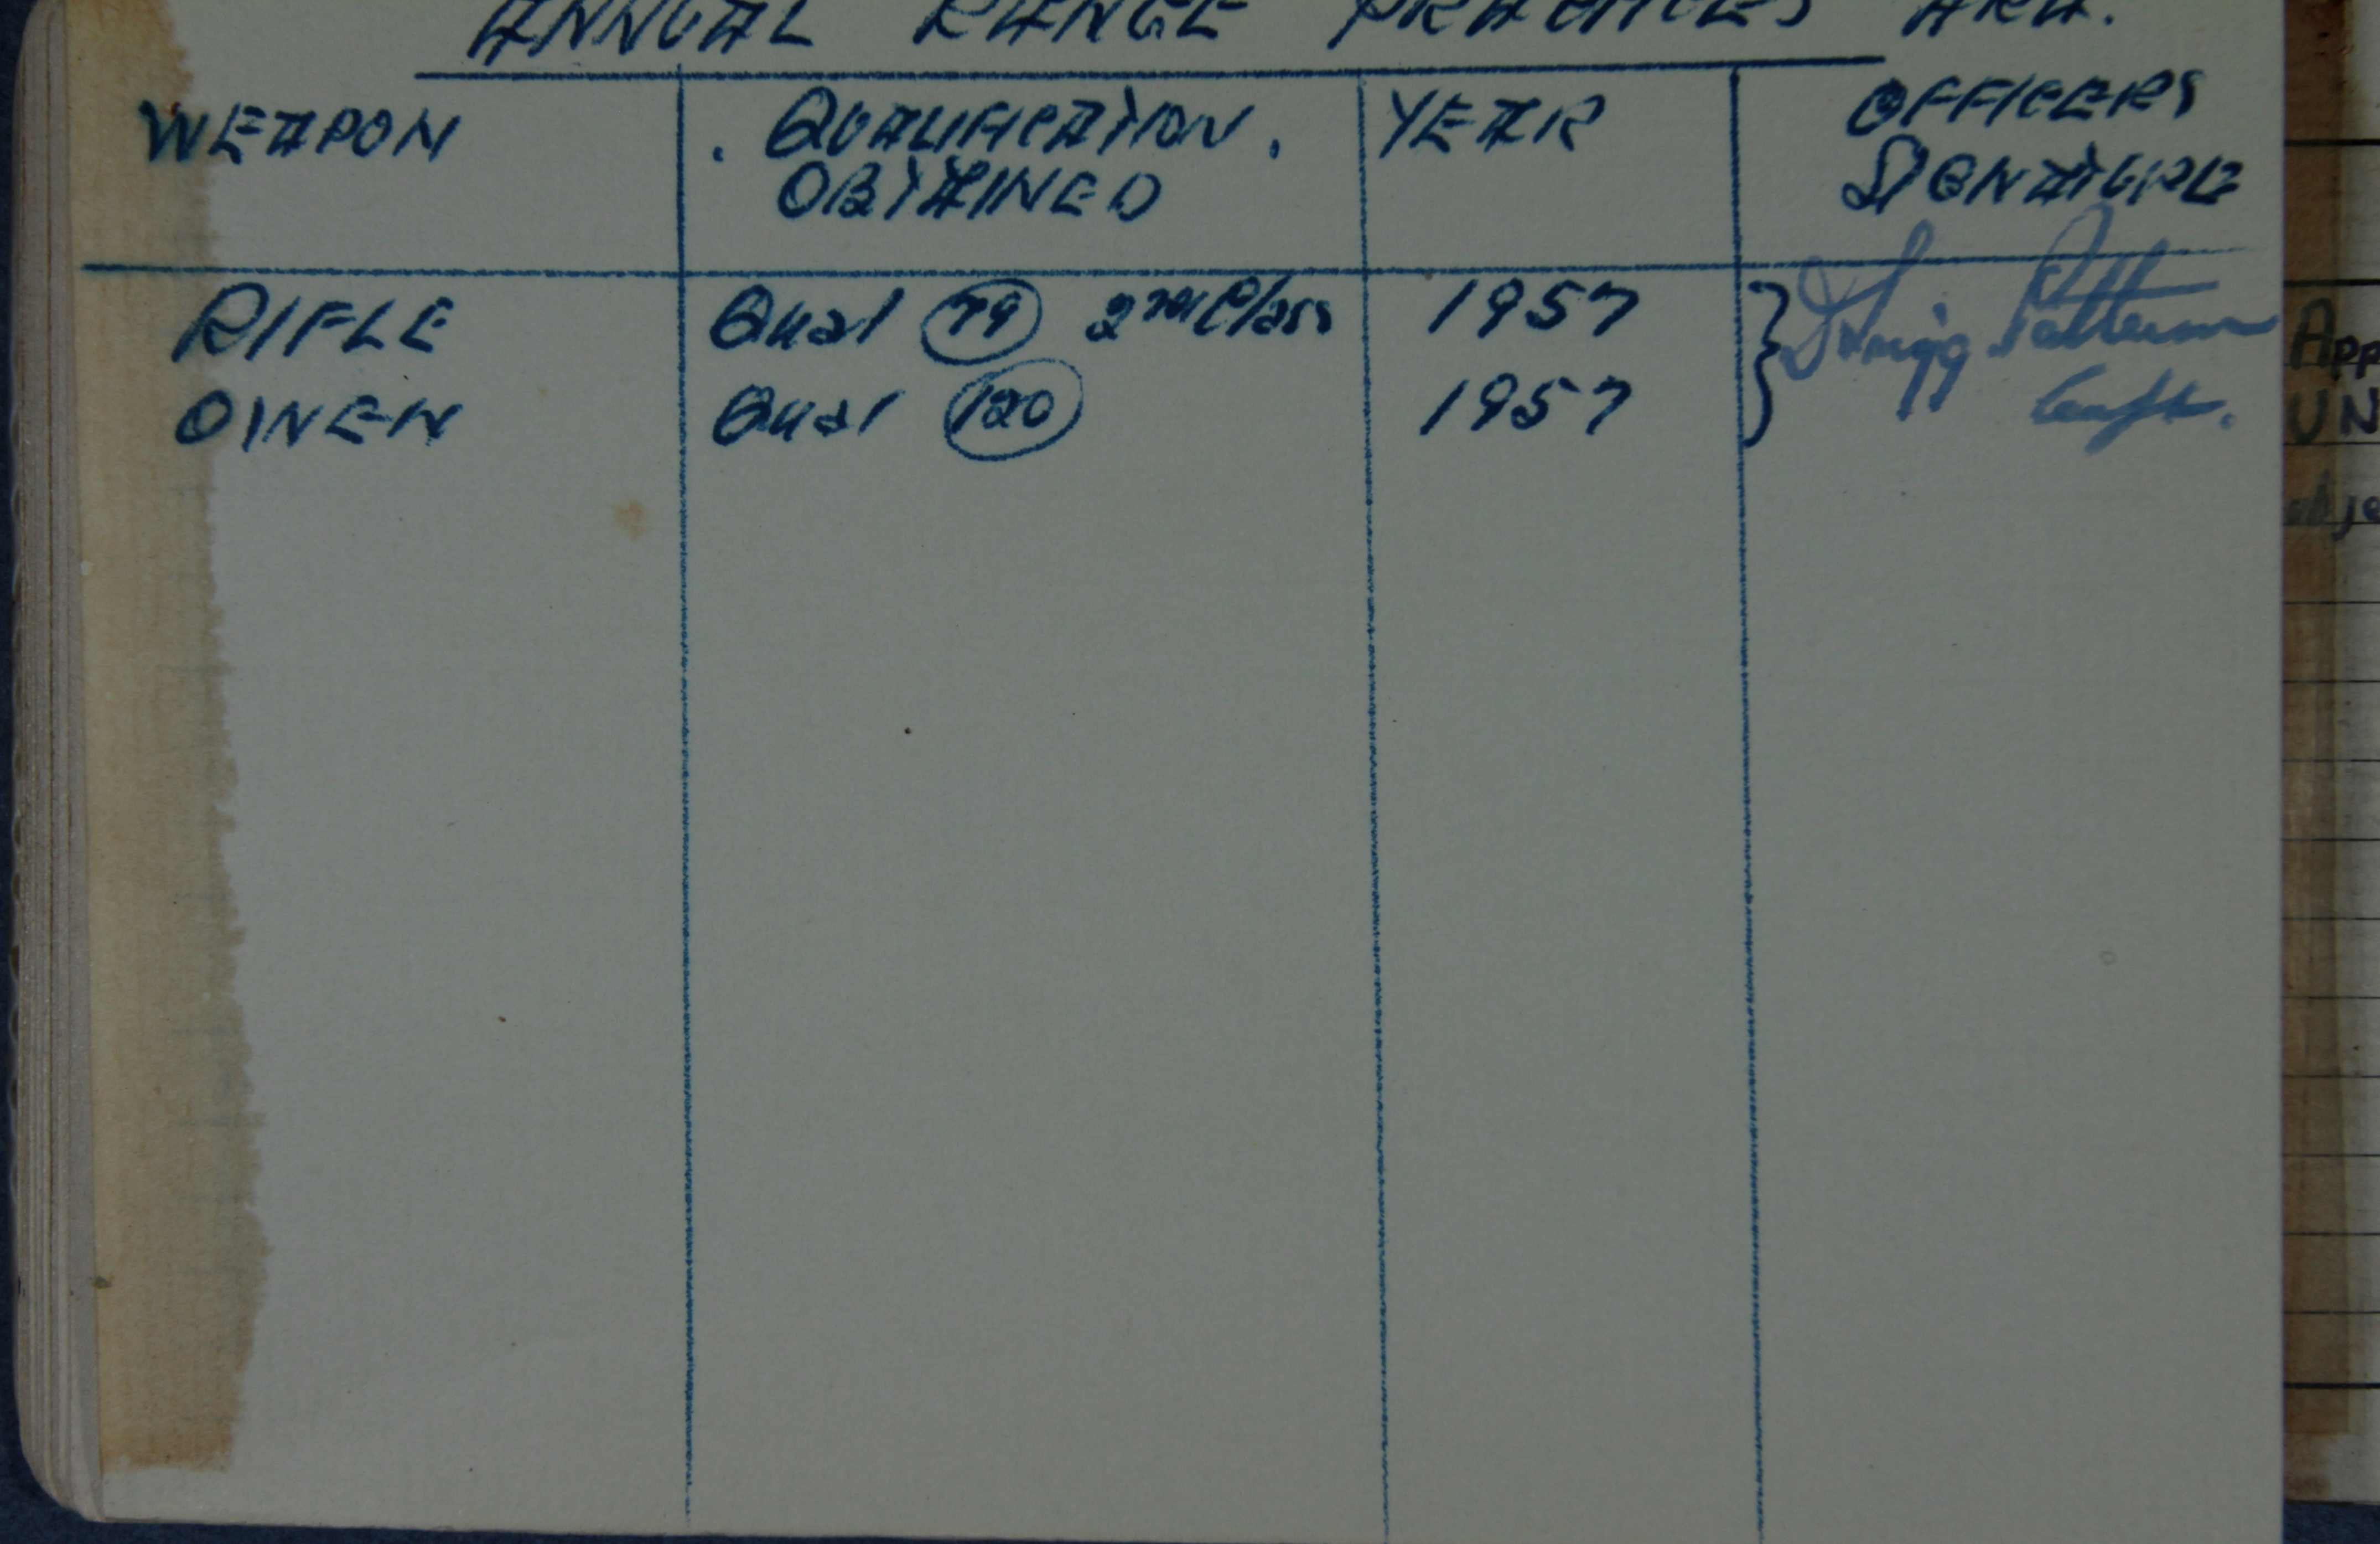 ANNUAL RANGE PRACTICES ARA.
WEAPON . QUALIFICATION . YEAR OFFICERS
OBTAINED SIGNATURE
RIFLE Qual 79 2nd Class 1957
OWEN Qual 120 1957 Capt.
App
UN
obje